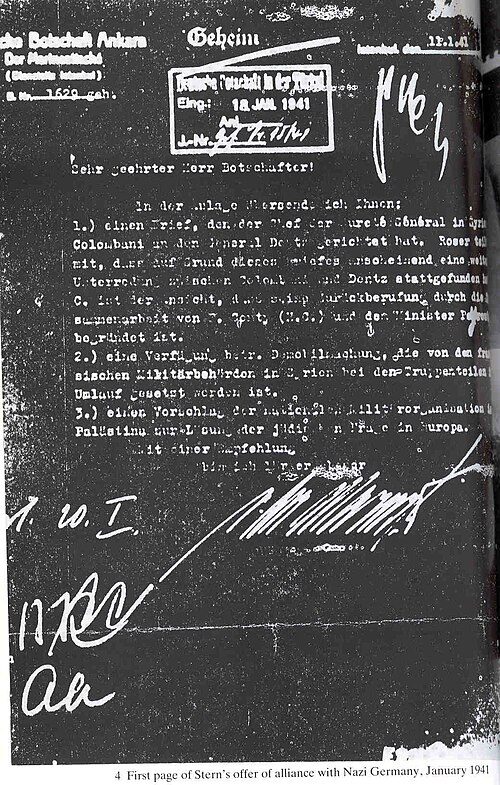 che Botschaft Ankara
Der Marineattaché
(Dienststelle Istanbul)
B. Nr. 1629 geh.
Geheim
Istanbul, den 11.1.41
Deutsche Botschaft in der Türkei
Eing.: 18. JAN. 1941
Anl
J.-Nr.
Sehr geehrter Herr Botschafter!
In der Anlage übersende ich Ihnen;
1.) einen Brief, den der Chef der Sureté Général in Syrie
Colombani an den General Dentz gerichtet hat. Roser teil
mit, dass auf Grund dieses Briefes anscheinend eine weite
Unterredung zwischen Colombani und Dentz stattgefunden
C. ist der Ansicht, dass seine Zurückberufung durch die
sammenarbeit von F. Conty (M.C.) und dem Minister
begründet ist.
2.) eine Verfügung betr. Demobilmachung, die von den fran
sischen Militärbehörden in Syrien bei den Truppenteilen
Umlauf gesetzt worden ist.
3.) einen Vorschlag der nationalen Militärorganisation
Palästina zur Lösung der jüdischen Frage in Europa.
Mit einer Empfehlung
bin ich Ihr ergebener
20. I.
4 First page of Stern's offer of alliance with Nazi Germany, January 1941